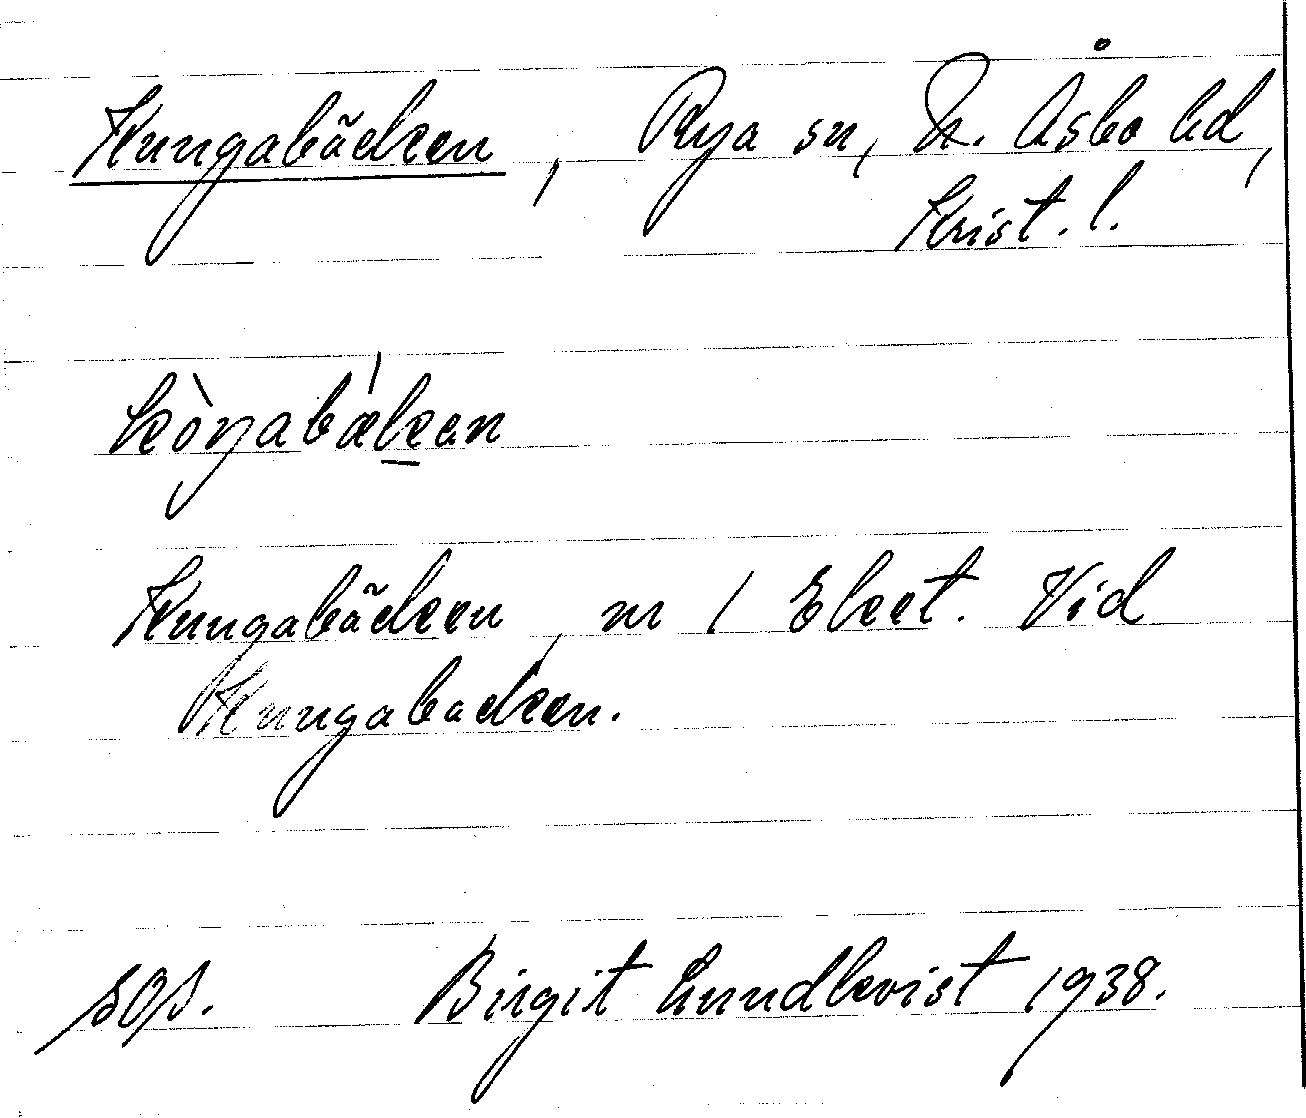 Kungabäcken, Rya sn, N. Åsbo hd,
Krist. l.
kòŋabækən
Kungabäcken, nr 1 Ekeet. Vid
Kungabäcken.
Birgit Lundkvist 1938.